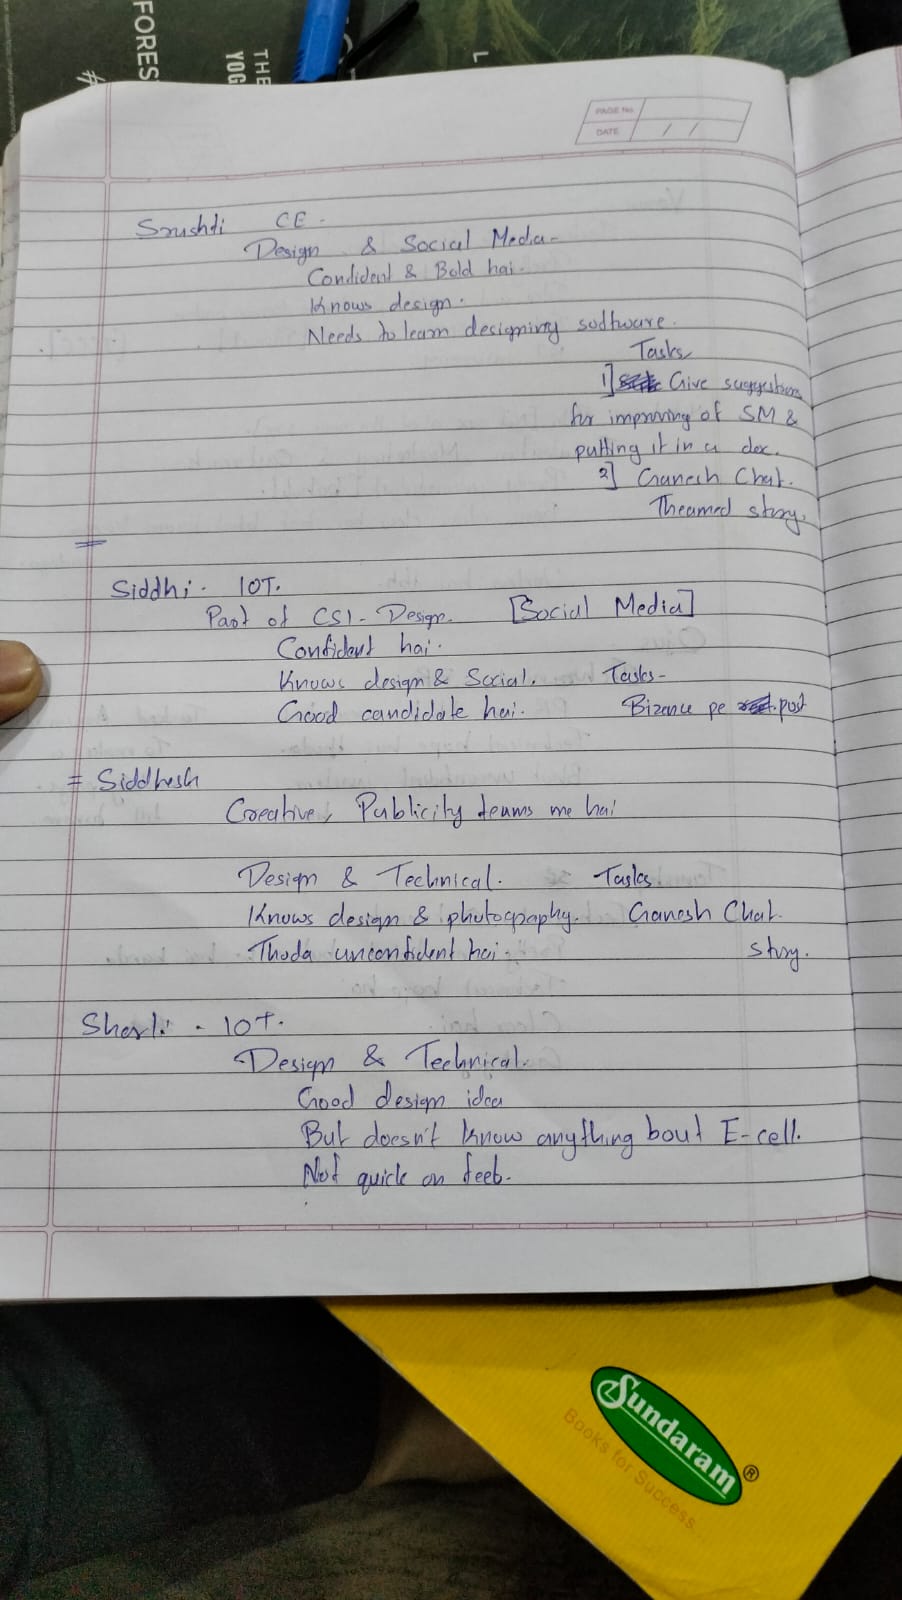 FORES
THE
YOG
L
#
PAGE No.
DATE / /
Srushti CE -
Design & Social Media -
Confident & Bold hai -
Knows design .
Needs to learn designing software .
Tasks
1] Give suggestions
for improving of SM &
putting it in a doc.
2] Ganesh Chat.
Theamed story.
Siddhi . IOT.
Part of CSI - Design. [Social Media]
Confident hai .
Knows design & Social. Tasks -
Good candidate hai . Bizance pe post
= Siddhesh
Creative, Publicity teams me hai
Design & Technical . Tasks
Knows design & photography. Ganesh Chat.
Thoda unconfident hai . story.
Sharli . IOT.
Design & Technical .
Good design idea
But doesn't know anything bout E-cell.
Not quick on feet .
Sundaram ®
Books for Success...